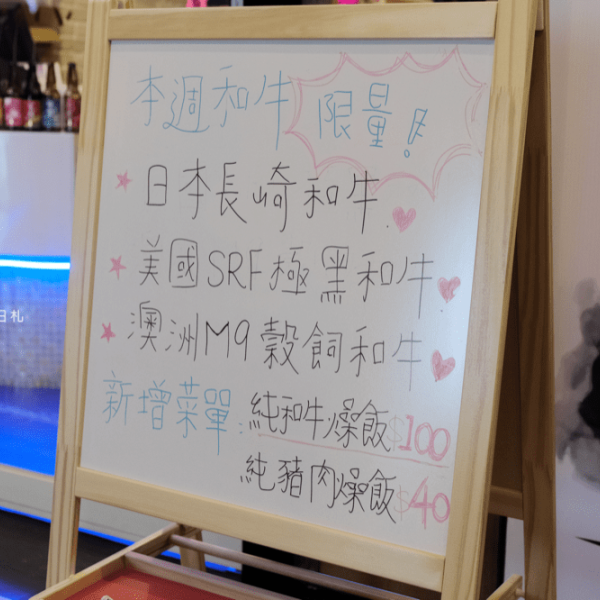 本週和牛 限量!
日本長崎和牛
美國SRF極黑和牛
澳洲M9穀飼和牛
新增菜單:純和牛燥飯$100
純豬肉燥飯$40
日札